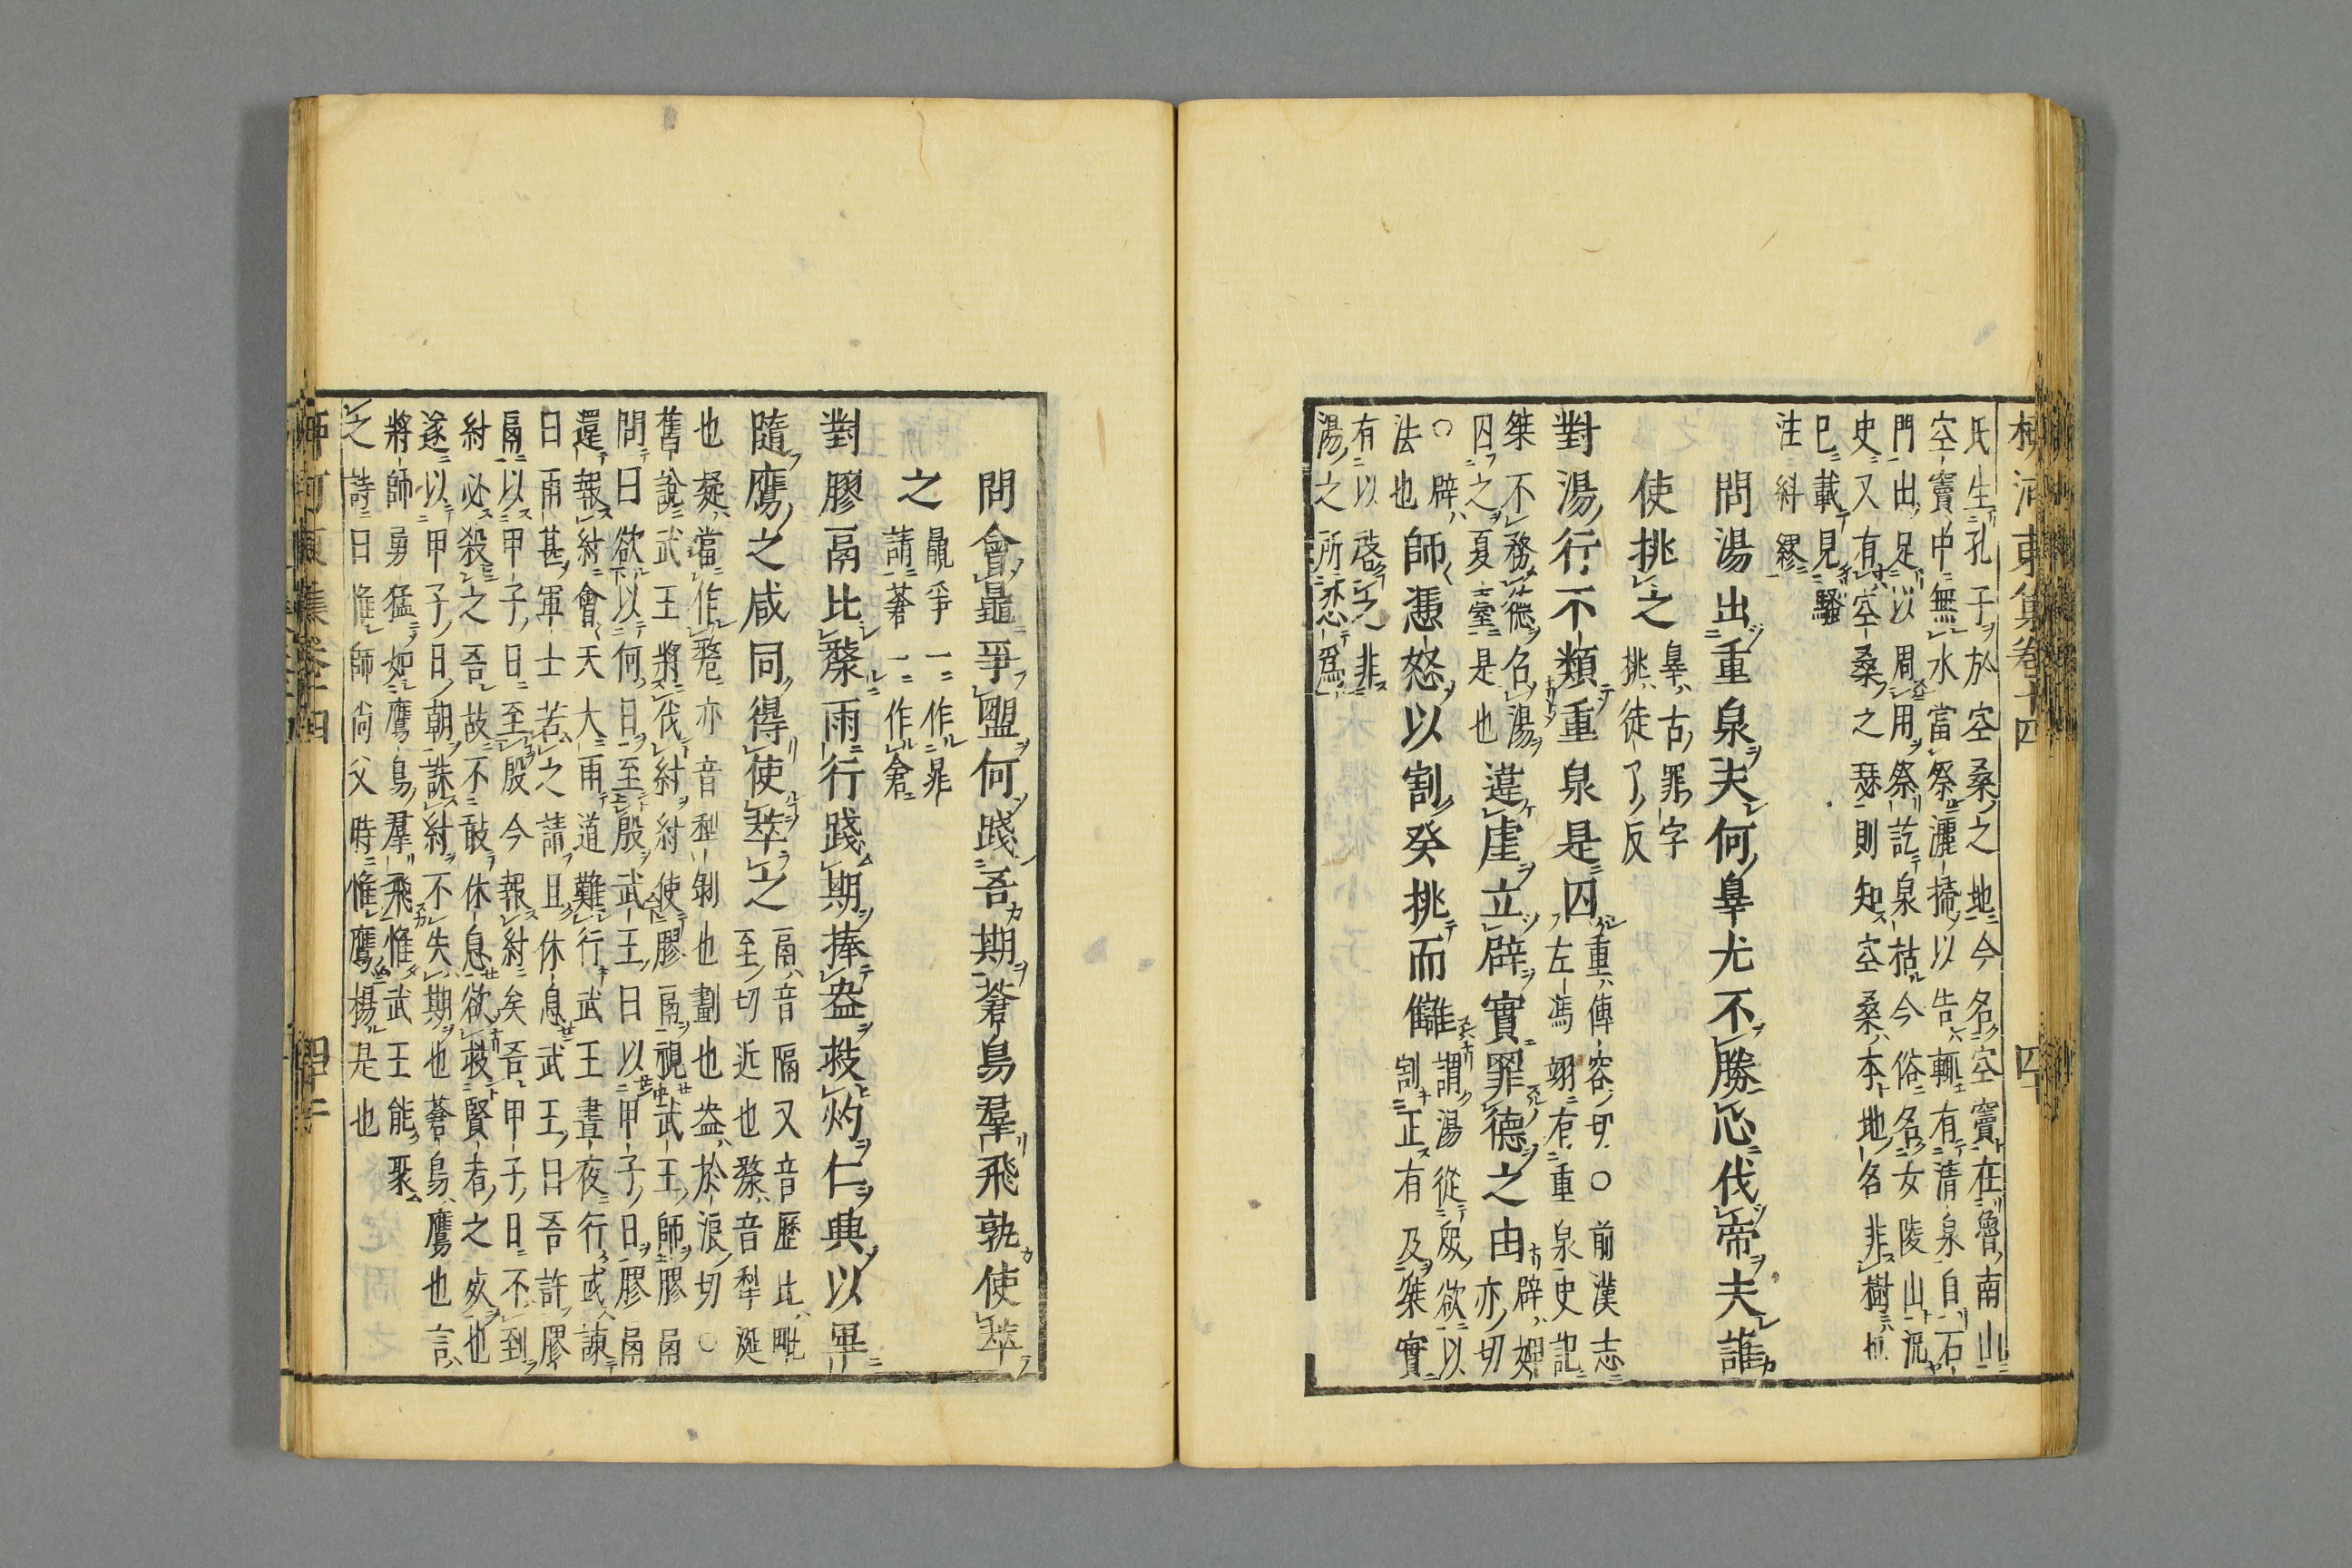 柳河東集卷十四
氏生孔子於空桑之地今名空竇在魯南山
空竇中無水當祭灑掃以告輒有清泉自石
門出足以周用祭訖泉枯今俗名女陵山況
史又有空桑之瑟則知空桑本地名非樹也
已載見騷
注糾繆
問湯出重泉夫何辠尤不勝心伐帝夫誰
使挑之
辠古罪字
挑徒了反
對湯行不類重泉是囚
重傳容切○前漢志
左馮翊有重泉史記
桀不務德召湯
囚之夏室是也
違虐立辟實罪德之由
辟婢
亦切
○辟
法也
師憑怒以割癸挑而讎
謂湯從衆欲以
割正有及桀實
有以啓之非
湯之所㤀爲
問會鼂爭盟何踐吾期蒼鳥羣飛孰使萃
之
鼂爭一作晁
請蒼一作倉
對膠鬲比漦雨行踐期捧盎救灼仁興以畢
隨鷹之咸同得使萃之
鬲音隔又音歷比毗
至切近也漦音犁涎
也凝當作漦亦音犁剝也劃也盎於浪切○
舊說武王將伐紂紂使膠鬲視武王師膠鬲
問曰欲以何日至殷武王曰以甲子日膠鬲
還報紂會天大雨道難行武王晝夜行或諫
曰雨甚軍士苦之請且休息武王曰吾許膠
鬲以甲子日至殷今報紂矣吾甲子日不到
紂必殺之吾故不敢休息欲救賢者之死也
遂以甲子日朝誅紂不失期也蒼鳥鷹也言
將師勇猛如鷹鳥羣飛惟武王能聚
之詩曰惟師尚父時惟鷹揚是也
柳河東集卷十四